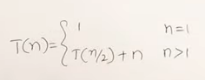 T(n)= { 1 n=1
T(n/2)+n n>1